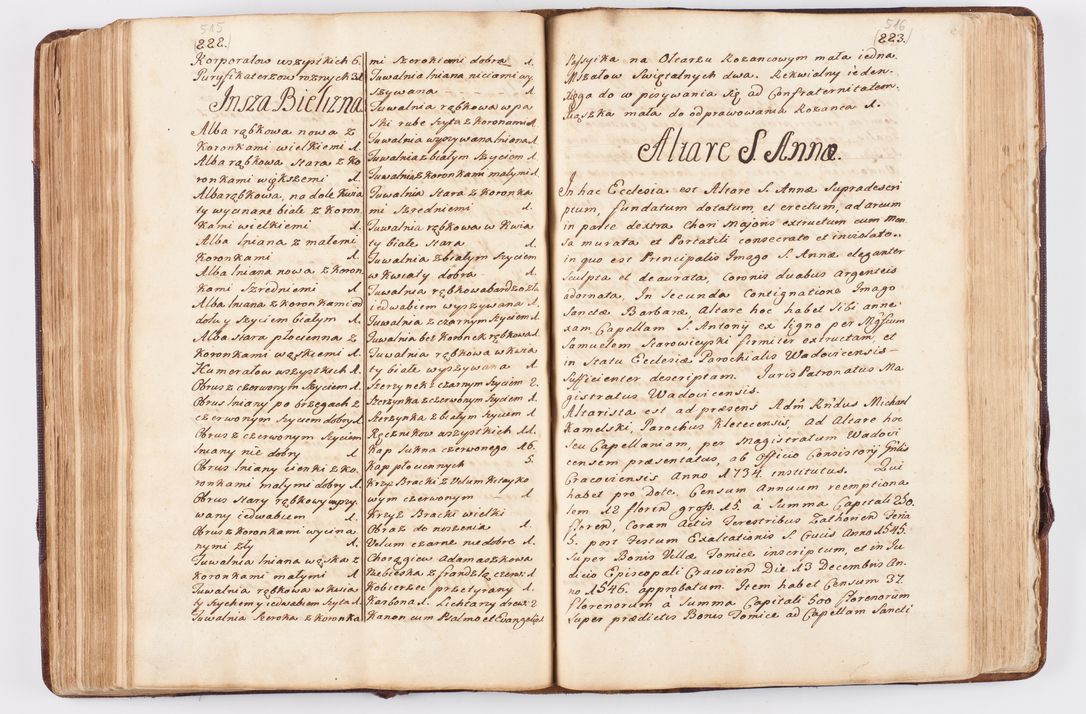 515
(222.)
Korporałow wszystkich 6.
Puryfikaterzow roznych 31
Insza Bielizna
Alba rąbkowa nowa z
Koronkami wielkiemi 1.
Alba rąbkowa stara z Ko
ronkami większemi 1.
Alba rąbkowa, na dole Kwia
ty wycinane białe z Koron
Kami wielkiemi 1.
Alba lniana z małemi
Koronkami 1.
Alba lniana nowa z Koron
Kami szredniemi 1.
Alba lniana z Koronkami od
dołu y szyciem białym 1.
Alba stara płocienna z
Koronkami wąskiemi 1.
Humerałow wszystkich 1.
Obrus z czerwonym szyciem 1.
Obrus lniany po brzegach z
czerwonym szyciem dobry 1.
Obrus z czerwonym szyciem
lniany nie dobry 1.
Obrus lniany cienki z Ko
ronkami małymi dobry 1.
Obrus stary rąbkowy wyszy
wany iedwabiem 1.
Obrus z Koronkami wycina
nymi zły 1.
Tuwalnia lniana wąska z
Koronkami małymi 1.
Tuwalnia rąbkowa w Kwia
ty szychem y iedwabiem szyta 1.
Tuwalnia szeroka z Koronka
mi szerokiemi dobra 1.
Tuwalnia lniana niciami wy
szywana 1.
Tuwalnia rąbkowa w pa
ski rube szyta z Koronami 1.
Tuwalnia wyszywana lniana 1.
Tuwalnia z białym szyciem 1.
Tuwalnia z Koronkami małymi 1.
Tuwalnia stara z Koronka
mi szredniemi 1.
Tuwalnia rąbkowa w Kwia
ty białe stara 1.
Tuwalnia z białym szyciem
w Kwiaty dobra 1.
Tuwalnia rąbkowa bardzo zła
iedwabiem wyszywana 1.
Tuwalnia z czarnym szyciem 1.
Tuwalnia bez Koronek rąbkowa 1.
Tuwalnia rąbkowa w Kwia
ty białe wyszywana 1.
Sterzynek z czarnym szyciem 2.
Sterzynka z czerwonym szyciem 1.
Sterzynka z białym szyciem 1.
Ręcznikow wszystkich 11.
Kap sukna czerwonego 16.
Kap płociennych 5.
Krzyz Bracki z Velum Kitayko
wym czerwonym 1.
Krzyz Bracki wielki
Obraz do noszenia 1.
Velum czarne niedobre 1.
Chorągiew Adamaszkowa
Niebieska z frandzlą czerw. 1.
Kobierzec przetyrany 1.
Karbona 1. Lichtarzy drew. 2
Kanon cum Psalmo et Evangelijs 1.
516
(223.)
Passyika na Ołtarzu Rozancowym mała iedna.
Mszałow Swiętalnych dwa. Rekwialny ieden.
Xięga do wpisywania się ad Confraternitatem.
Xiązka mała do odprawowania Rozanca 1.
Altare S. Annæ.
In hac Ecclesia est Altare S. Annæ supradescri
ptum, fundatum dotatum, et erectum, ad arcum
in parte dextra Chori Majoris extructum cum Men
sa murata et Portatili consecrato et inviolato.
in quo est Principalis Imago S. Annæ eleganter
sculpta et deaurata, Coronis duabus argenteis
adornata. In secunda Contignatione Imago
Sanctæ Barbaræ, Altare hoc habet sibi anne
xam Capellam S. Antony ex ligno per Mgfcum
Samuelem Starowieyski firmiter extructam, et
in Statu Ecclesiæ Parochialis Wadovicensis
sufficienter descriptam. Juris Patronatus Ma
gistratus Wadovicensis.
Altarista est ad præsens Admˢ Rndus Michael
Kamelski, Parochus Kletecensis, ad Altare hoc
seu Capellaniam, per Magistratum Wadovi
censem præsentatus, ab officio Consistory Gnlis
Cracoviensis Anno 1734 institutus. Qui
habet pro Dote, Censum Annuum reemptiona
lem 12 floren gross. 15. a Summa Capitali 250.
floren, Coram Actis Terrestribus Zathorien Feria
5. post Festum Exaltationis S. Crucis Anno 1545.
super Bonis Villæ Tomice inscriptum, et in Ju
dicio Episcopali Cracovien Die 13 Decembris An
no 1546. approbatum. Item habet Censum 37
florenorum a Summa Capitali 500 florenorum
super prædictis Bonis Tomice ad Capellam Sancti